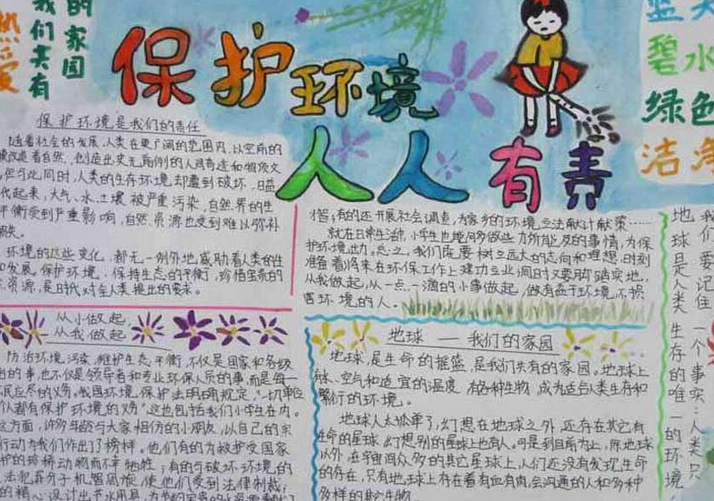 热爱
我们共有
的家园
保护环境
人人有责
蓝天
碧水
绿色
洁净
保护环境是我们的责任
随着社会的发展,人类在更广阔的范围内,以空前的
改造着自然,创造出史无前例的人间奇迹和物质文
但与此同时,人类的生存环境却遭到破坏,日益
代起来,大气、水、土壤被严重污染,自然界的生
平衡受到严重影响,自然资源也受到难以弥补
损失。
环境的这些变化,都无一例外地威胁着人类的生
和发展。保护环境、保持生态的平衡,珍惜宝贵的
资源,是时代对全人类提出的要求。
从小做起,
从我做起
防治环境污染,维护生态平衡,不仅是国家和各级
的事,也不仅是领导者和专业环保人员的事,而是每一
民应尽的义务。我国环境保护法明确规定,"一切单位
个人都有保护环境的义务",这也包括我们小学生在内。
这方面,许多年龄与大家相仿的小朋友,以自己的实
行动为我们作出了榜样。他们有的为救护受国家
护的珍稀动物而牺牲;有的与破坏环境的
法犯罪分子机智周旋,使他们受到法律制裁;
的精心设计出节水用具,为节约宝贵的水资源
指;有的还开展社会调查,为家乡的环境立法献计献策……
就在日常生活中,小学生也能够多做些力所能及的事情,为保
护环境出力。总之,我们既要树立远大的志向和理想,时刻
准备着将来在环保工作上建功立业,同时又要脚踏实地,
从我做起,从一点一滴的小事做起,做有益于环境、不损
害环境的人。
地球——我们的家园
地球,是生命的摇篮,是我们共有的家园。地球上
水、空气和适宜的温度,有各种生物,成为适合人类生存和
繁衍的环境。
地球人太孤单了,幻想在地球之外,还存在其它有
生命的星球,幻想别的星球上也有人。可是到目前为止,除地球
以外,在宇宙间众多的其它星球上,人们还没有发现生命
的存在,只有地球上存在着有血有肉,会沟通的人和多种
多样的其它生物。
我们要记住一个事实:人
地球是人类生存的唯一的环境